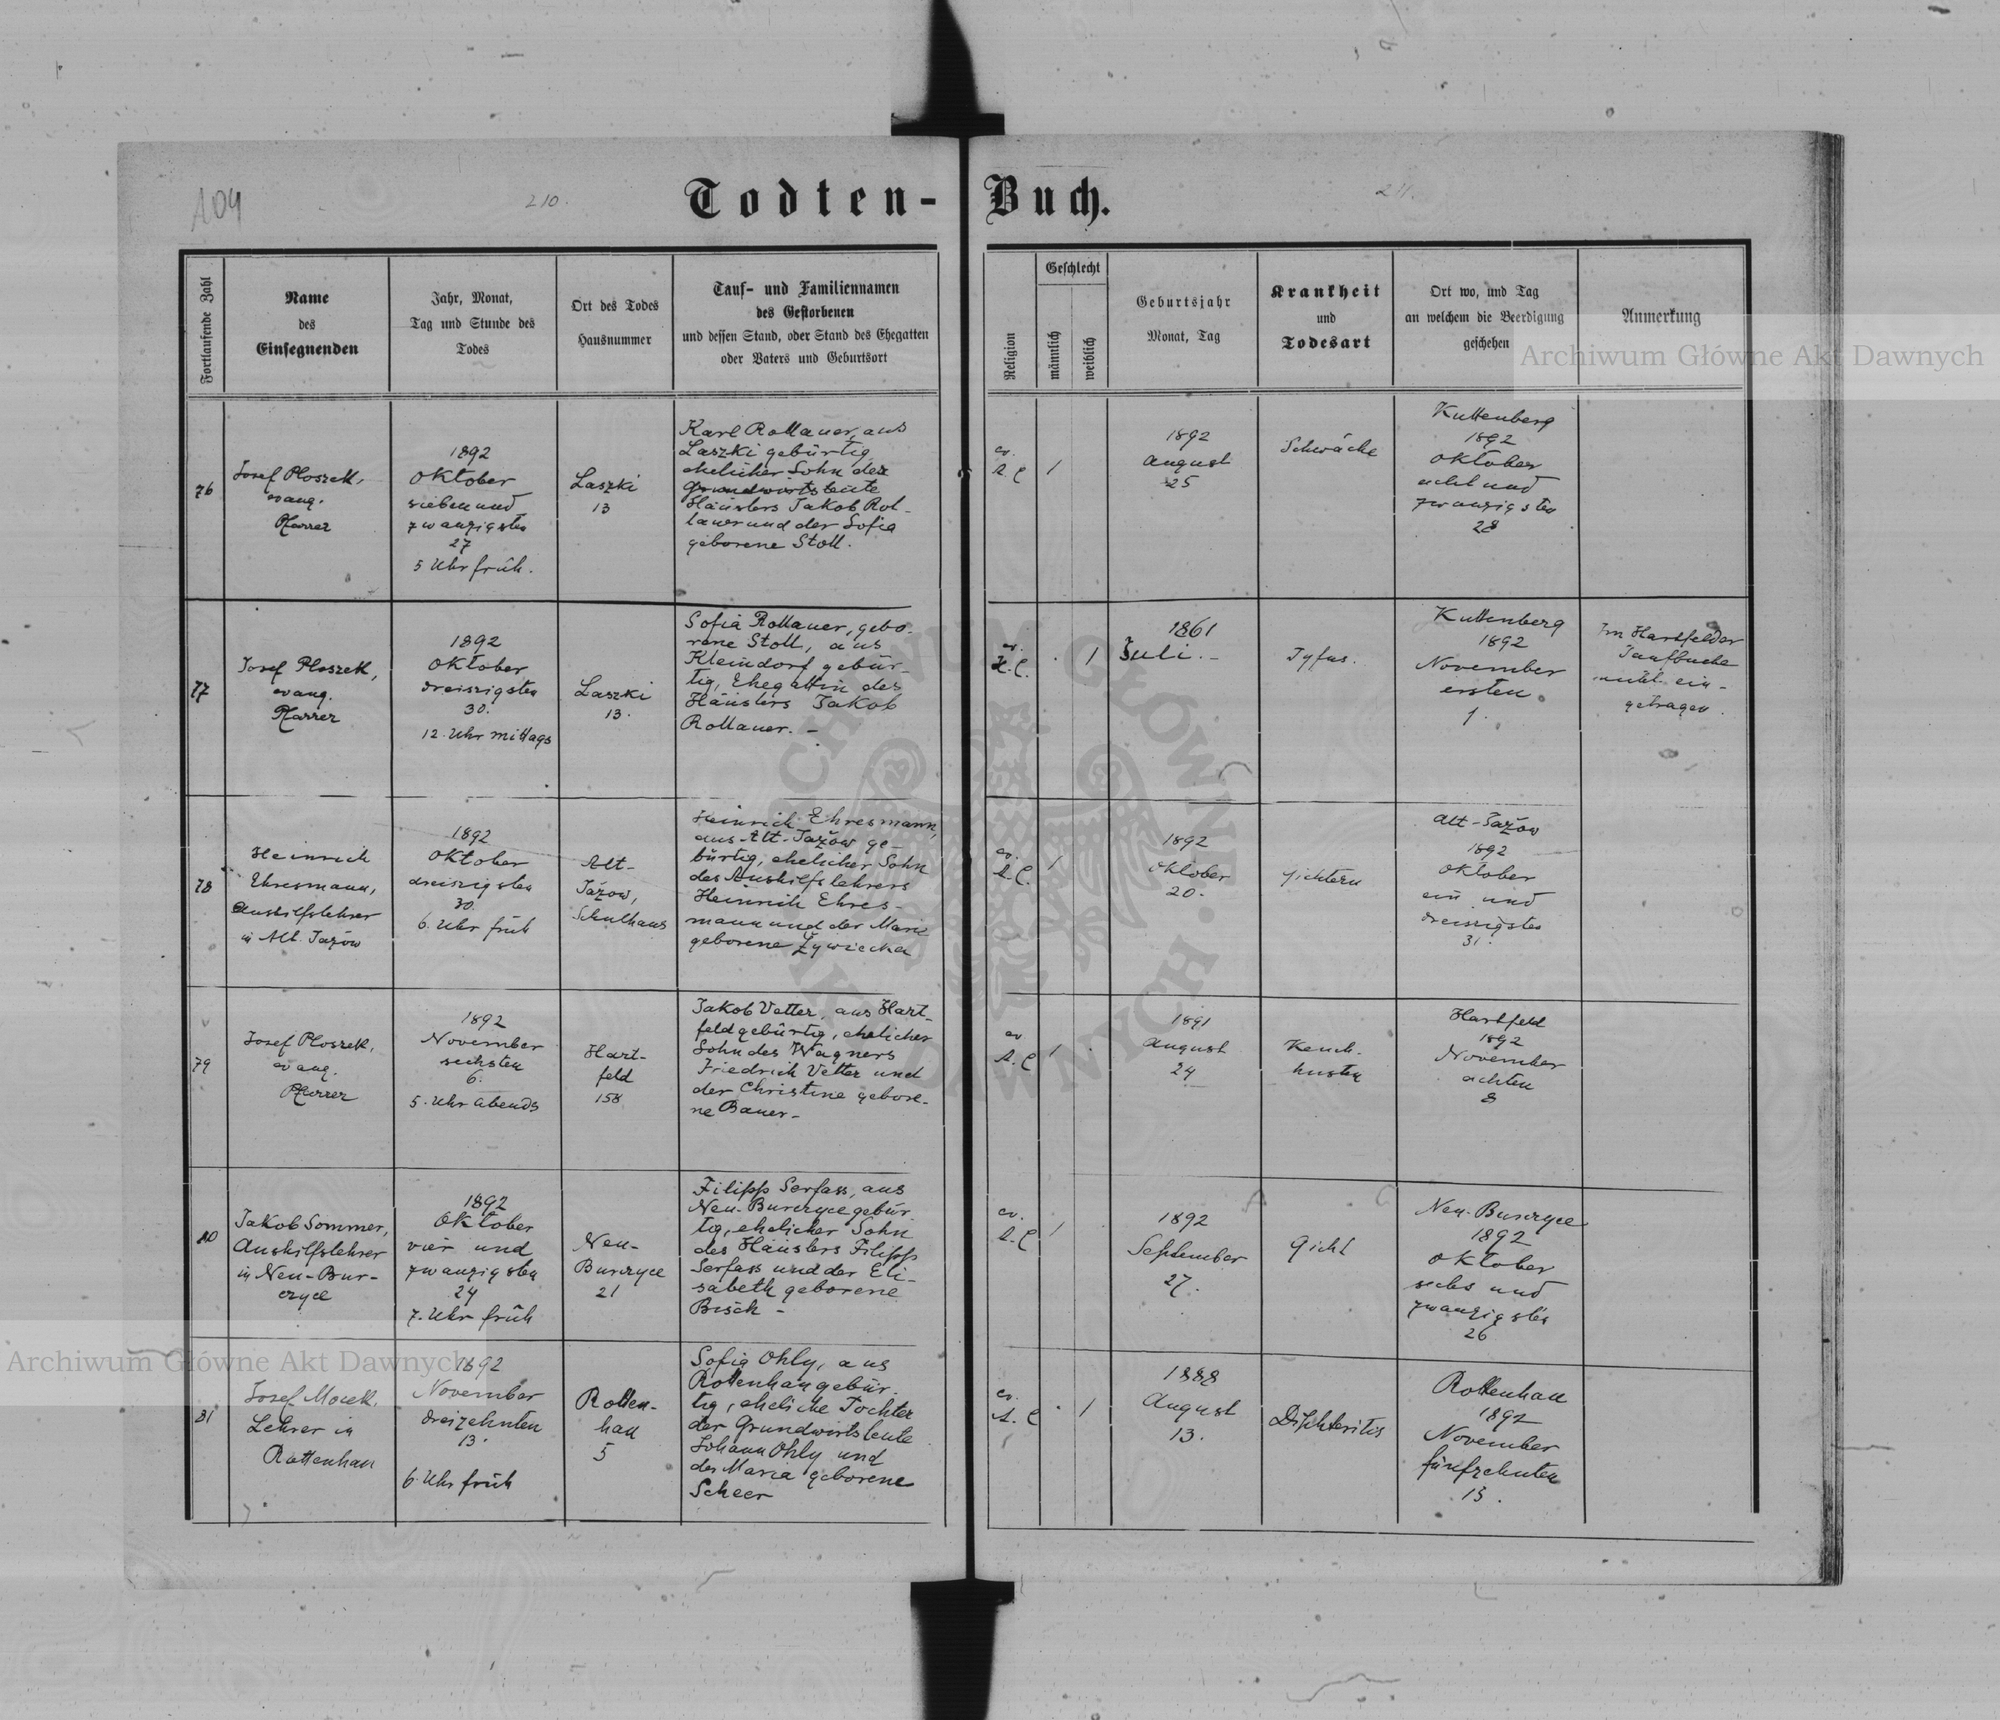 104
210.
211.
Todten-Buch.
Fortlaufende Zahl
Name
des
Einsegnenden
Jahr, Monat,
Tag und Stunde des
Todes
Ort des Todes
Hausnummer
Tauf- und Familiennamen
des Gestorbenen
und dessen Stand, oder Stand des Ehegatten
oder Vaters und Geburtsort
Religion
Geschlecht
männlich
weiblich
Geburtsjahr
Monat, Tag
Krankheit
und
Todesart
Ort wo, und Tag
an welchem die Beerdigung
geschehen
Anmerkung
Archiwum Główne Akt Dawnych
76
Josef Ploszek,
evang.
Pfarrer
1892
Oktober
sieben und
zwanzigsten
27
5 Uhr früh.
Laszki
13
Karl Rollauer, aus
Laszki gebürtig,
ehelicher Sohn der
Grundwirtsleute
Häuslers Jakob Rol-
lauer und der Sofia
geborene Stoll.
ev.
A. C
1
1892
August
25
Schwäche
Kuttenberg
1892
Oktober
acht und
zwanzigsten
28
77
Josef Ploszek,
evang.
Pfarrer
1892
Oktober
dreiszigsten
30.
12. Uhr mittags
Laszki
13.
Sofia Rollauer, gebo-
rene Stoll, aus
Kleindorf gebür-
tig, Ehegattin des
Häuslers Jakob
Rollauer. -
ev.
H. C.
1
1861
Juli. -
Tyfus.
Kuttenberg
1892
November
ersten
1.
Im Hartfelder
Taufbuche
nicht ein-
getragen.
78
Heinrich
Ehresmann,
Aushilfslehrer
in Alt. Jazów
1892
Oktober
dreiszigsten
30.
6. Uhr früh
Alt-
Jazow,
Schulhaus
Heinrich Ehresmann,
aus Alt-Jazów ge-
bürtig, ehelicher Sohn
des Aushilfslehrers
Heinrich Ehres-
mann und der Marie
geborene Żywicka
ev.
A. C.
1
1892
Oktober
20.
Gichtern
Alt-Jazów
1892
Oktober
ein und
dreiszigsten
31.
79
Josef Ploszek,
evang.
Pfarrer
1892
November
sechsten
6.
5. Uhr abends
Hart-
feld
158
Jakob Vetter, aus Hart-
feld gebürtig, ehelicher
Sohn des Wagners
Friedrich Vetter und
der Christine gebore-
ne Bauer -
ev
A. C
1
1891
August
24
Keuch-
husten
Hartfeld
1892
November
achten
8
80
Jakob Sommer,
Aushilfslehrer
in Neu-Bur-
czyce
1892
Oktober
vier und
zwanzigsten
24
7. Uhr früh
Neu-
Burczyce
21
Filipp Serfass, aus
Neu-Burczyce gebür
tig, ehelicher Sohn
des Häuslers Filipp
Serfass und der Eli-
sabeth geborene
Bisch -
ev.
A. C
1
1892
September
27.
Gicht
Neu-Burczyce
1892
Oktober
sechs und
zwanzigsten
26
Archiwum Główne Akt Dawnych
81
Josef Mocek,
Lehrer in
Rottenhan
1892
November
dreizehnten
13.
6. Uhr früh
Rotten-
han
5
Sofia Ohly, aus
Rottenhan gebür-
tig, eheliche Tochter
der Grundwirtsleute
Johann Ohly und
der Maria geborene
Scheer
ev.
A. C
1
1888
August
13.
Diphteritis
Rottenhan
1892
November
fünfzehnten
15.